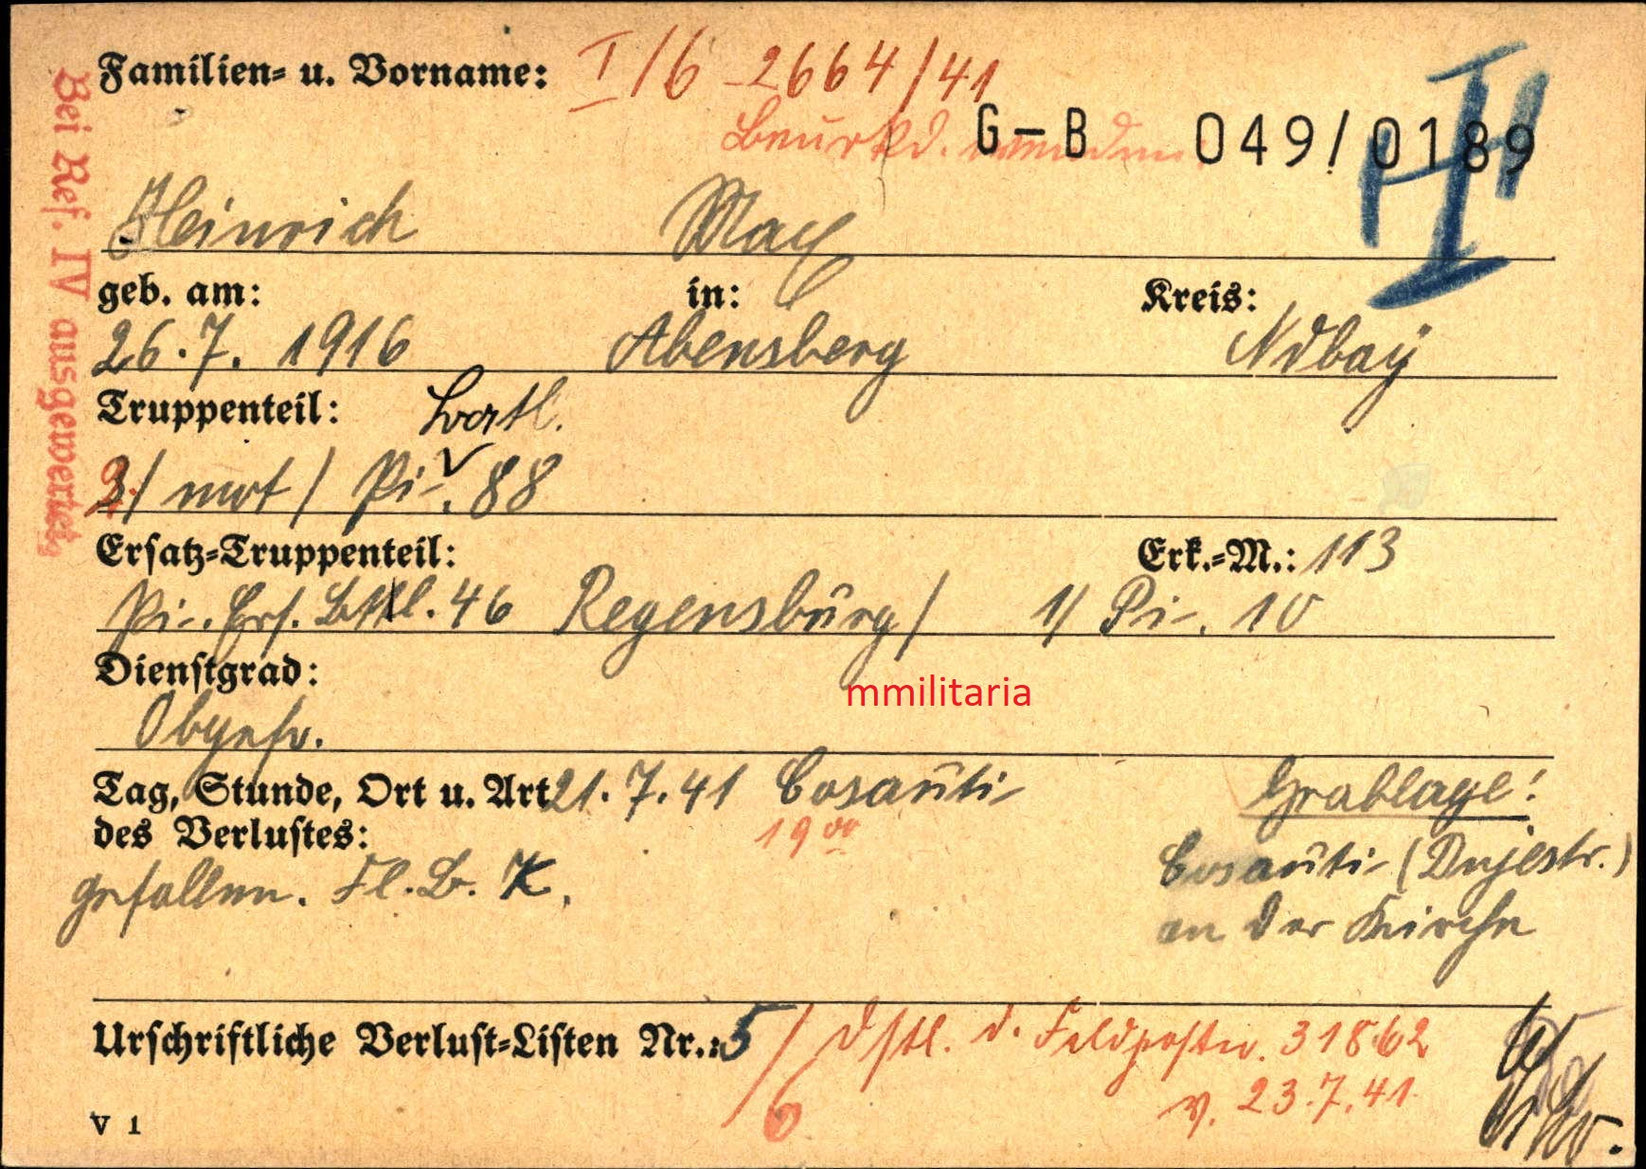 Familien- u. Vorname: I/6 - 2664/41
Beurkd. G-B 049/0189
Heinrich Max
geb. am: in: Kreis:
26.7. 1916 Abensberg Ndbay
Truppenteil: Battl.
3/ mot / Pi. 88
Ersatz-Truppenteil: Erk.-M.: 113
Pi. Ers. Btl. 46 Regensburg / 1/ Pi. 10
Dienstgrad:
Obgefr.
mmilitaria
Tag, Stunde, Ort u. Art 21.7.41 Cosauti Grablage!
des Verlustes: 19⁰⁰ Cosauti (Dnjestr.)
gefallen. Fl. B. K. an der Kirche
Urschriftliche Verlust-Listen Nr.: 5 / Dstl. d. Feldpostnr. 31862
6 v. 23.7.41
V 1
Bei Ref. IV ausgewertet